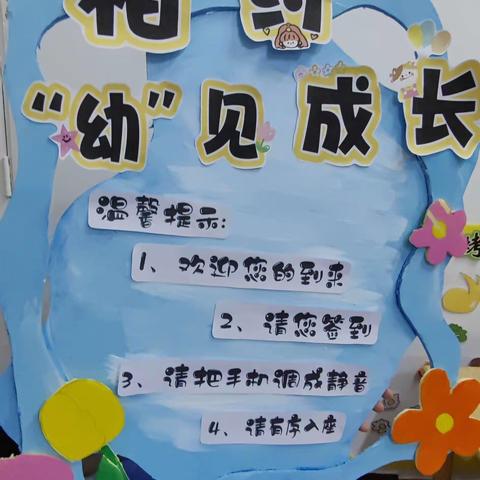 相约
“幼”见成长
温馨提示:
1、欢迎您的到来
2、请您签到
3、请把手机调成静音
4、请有序入座